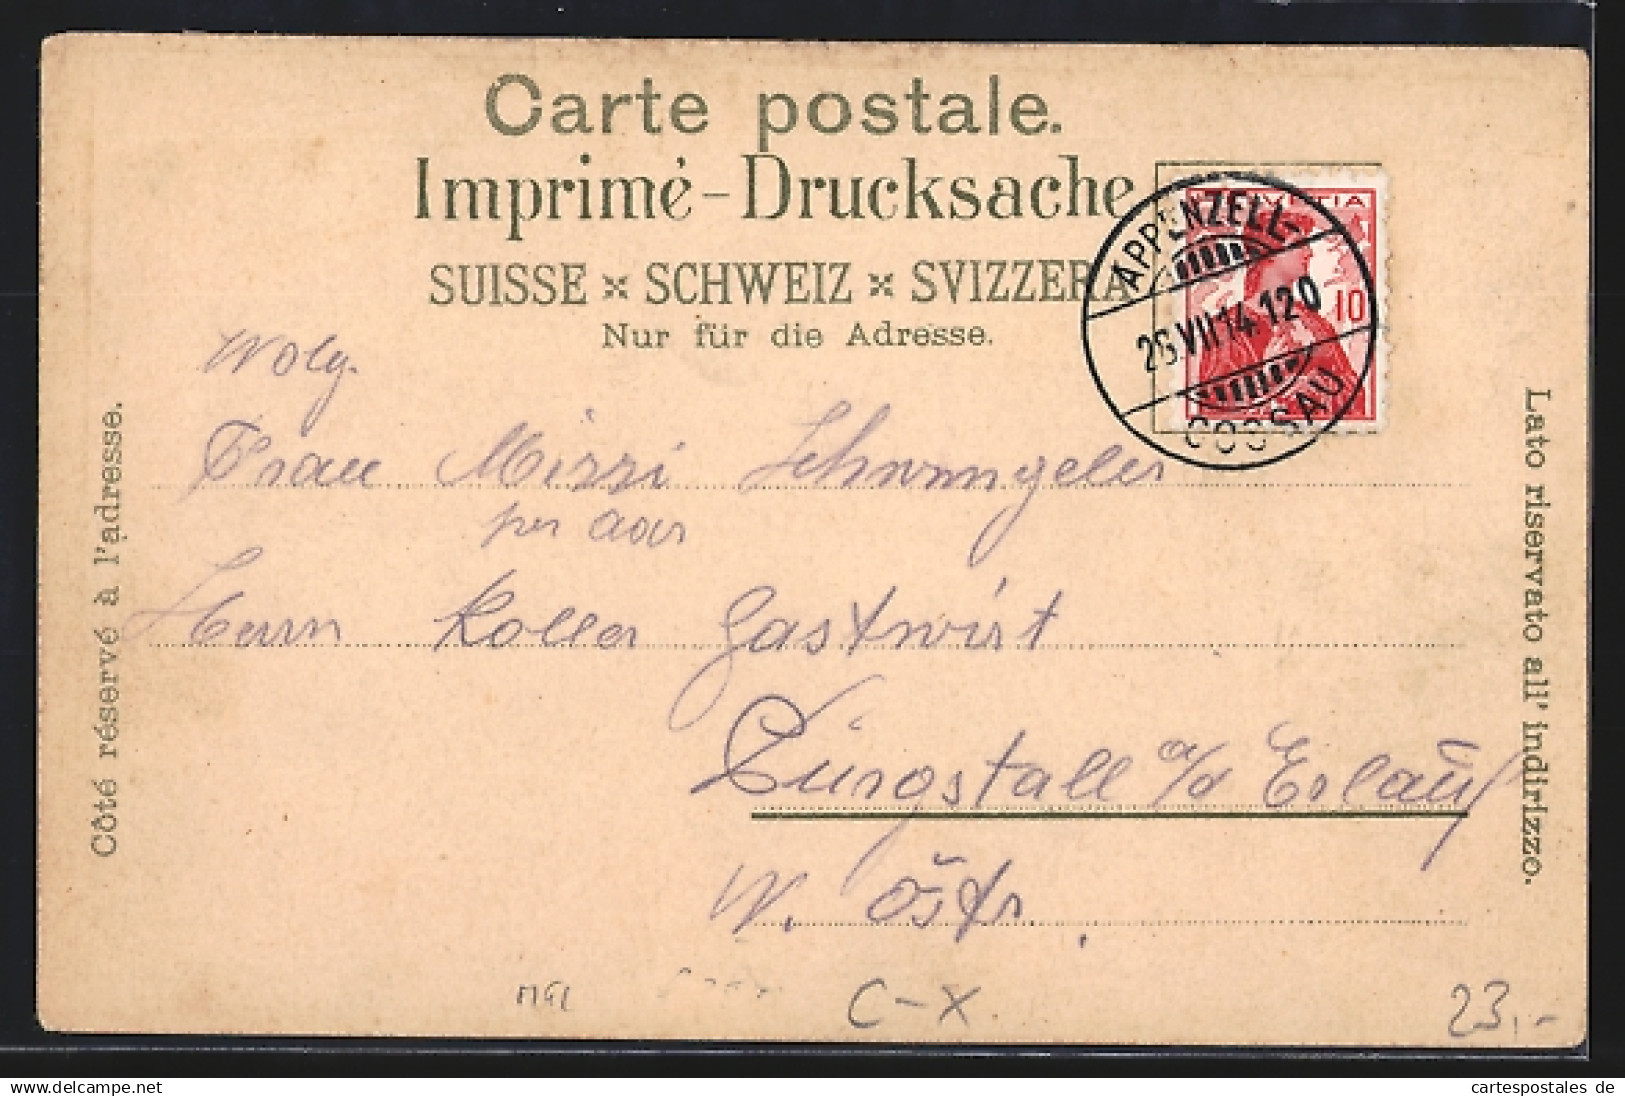 Carte postale.
Imprimé-Drucksache
SUISSE × SCHWEIZ × SVIZZERA
Nur für die Adresse.
HELVETIA
10
APPENZELL-
26.VII14.120
GOSSAU
Côté réservé à l'adresse.
Lato riservato all' indirizzo.
Wolg.
Frau Mizzi
per adr
Herrn Koller Gastwirt
Purgstall a/d Erlauf
N. Östr.
MGL
C-X
23,-
cartespostales de